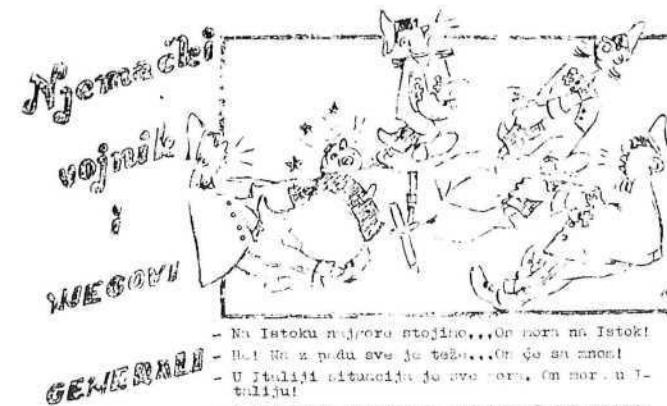 Njemački
vojnik
i
NJEGOVI
GENERALI
- Na Istoku najgore stojimo...On mora na Istok!
- He! Na z padu sve je teže...On će sa mnom!
- U Italiji situacija je sve gora. On mora u I-
taliju!